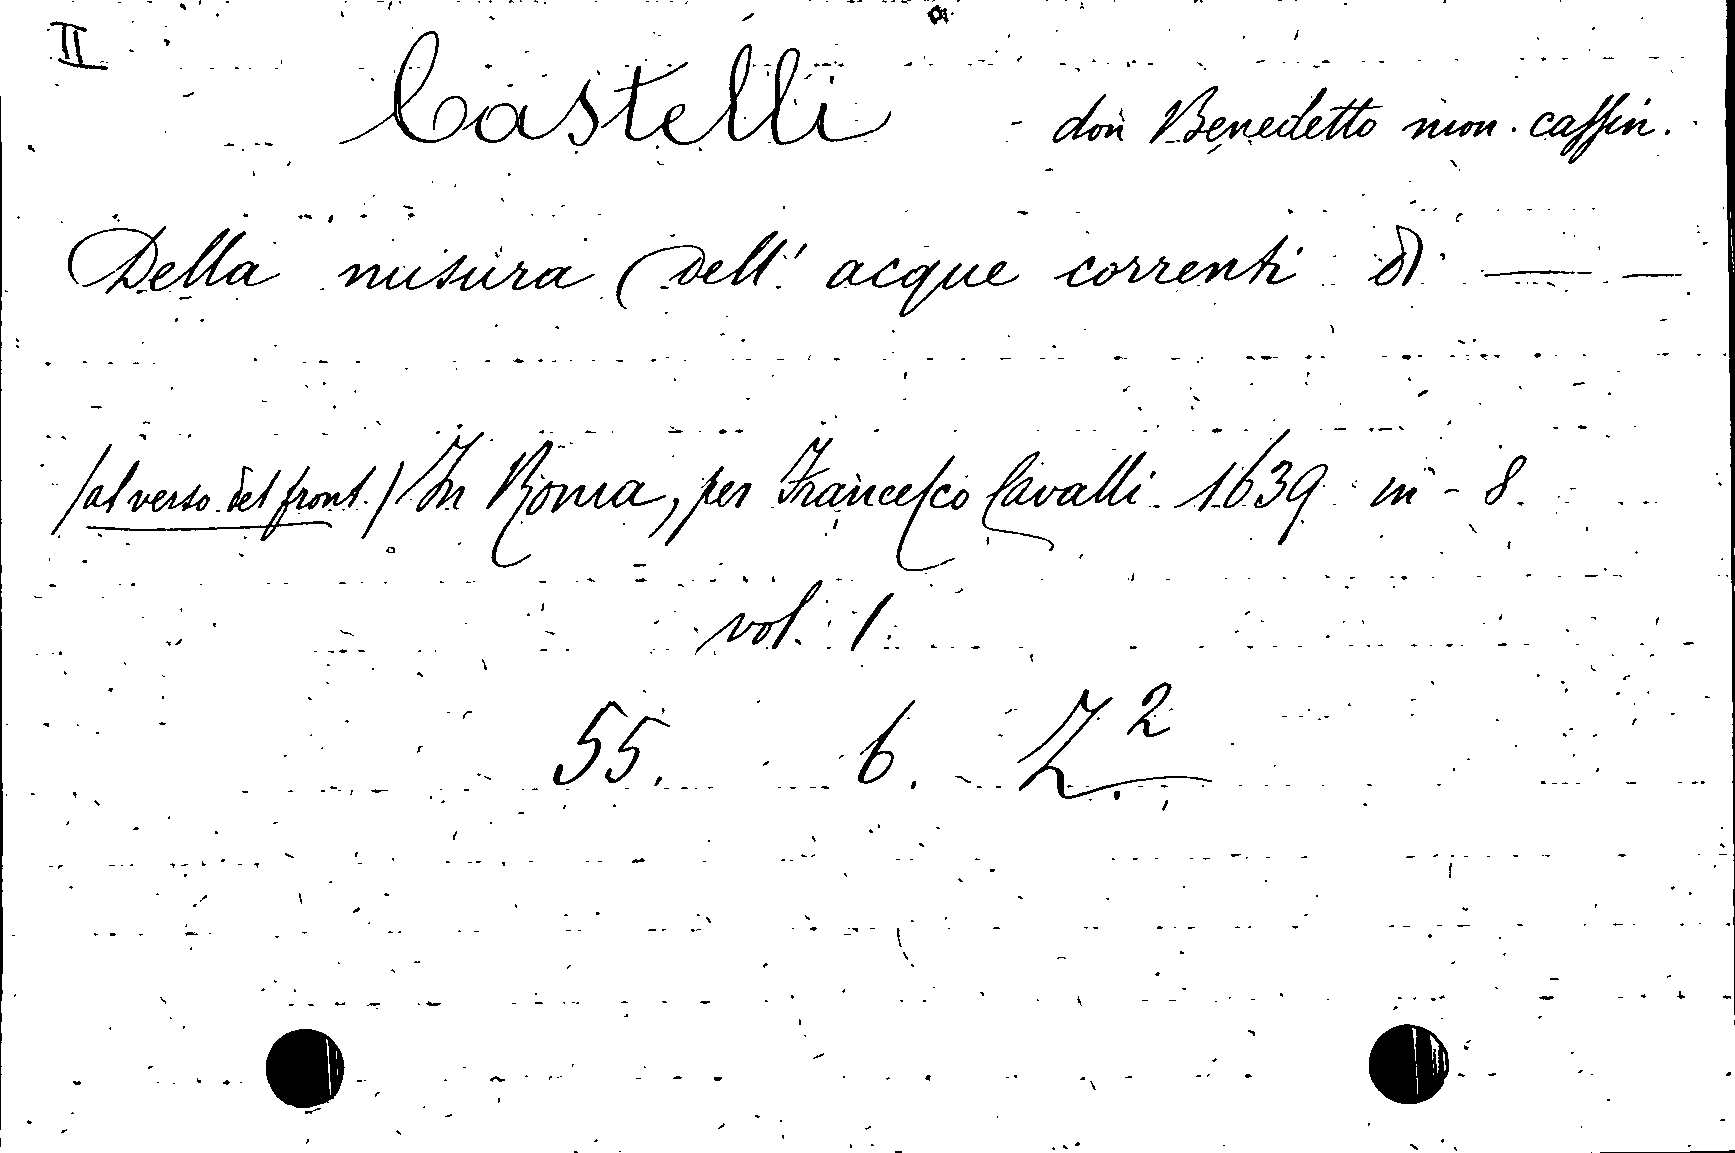 II
Castelli - don Benedetto mon. caſſin.
Della misura dell' acque correnti di — —
(al verso del front.) In Roma, per Franceſco Cavalli 1639 in - 8.
vol. 1.
55. 6. Z.2